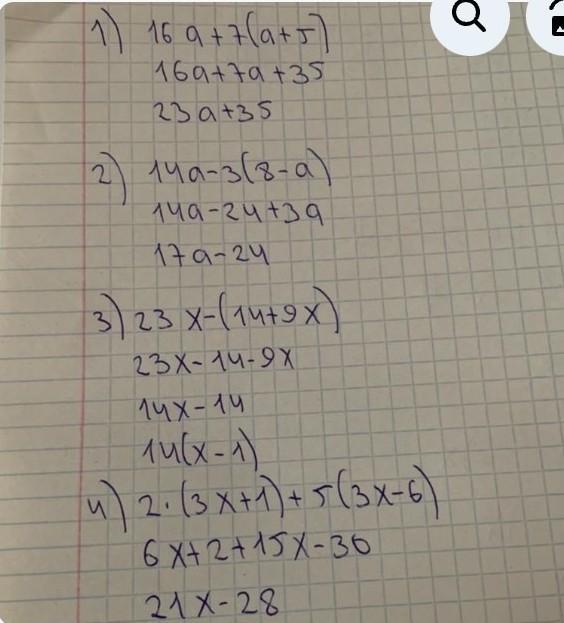 1) 16a+7(a+5)
16a+7a+35
23a+35
2) 14a-3(8-a)
14a-24+3a
17a-24
3) 23x-(14+9x)
23x-14-9x
14x-14
14(x-1)
4) 2·(3x+1)+5(3x-6)
6x+2+15x-30
21x-28